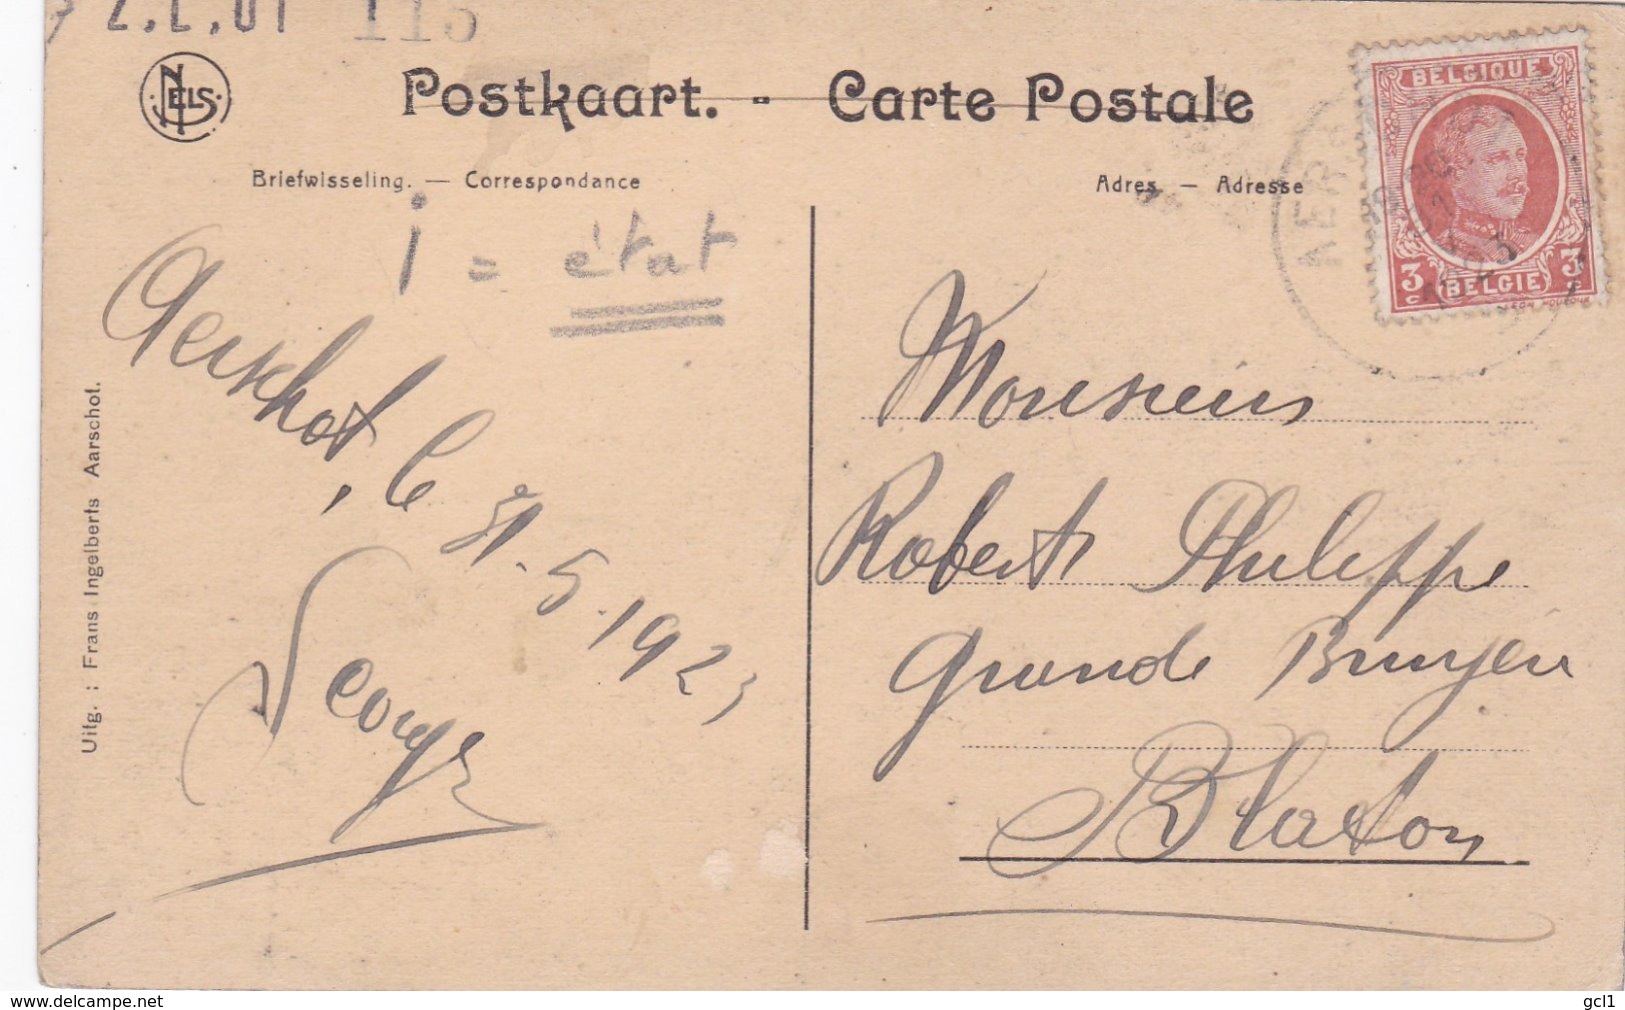 115
NELS
Postkaart. - Carte Postale
Briefwisseling. — Correspondance
Adres — Adresse
BELGIQUE
3 c BELGIE 3
AER
i = état
Aerschot, le
31.5.1923
Georges
Monsieur
Robert Philippe
Grande Bruyère
Blaton
Uitg. : Frans Ingelberts Aarschot.
www.delcampe.net
gcl1